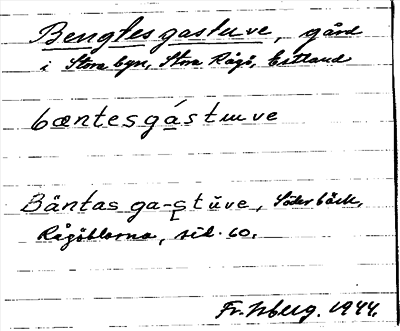 Bengtesgastuve, gård
i Stora byn, Stora Rågö, Estland
bæntesgástuve
Bäntas ga-stŭve, Söderbäck,
Rågöblorna, sid. 60.
Fr. Isberg. 1944.